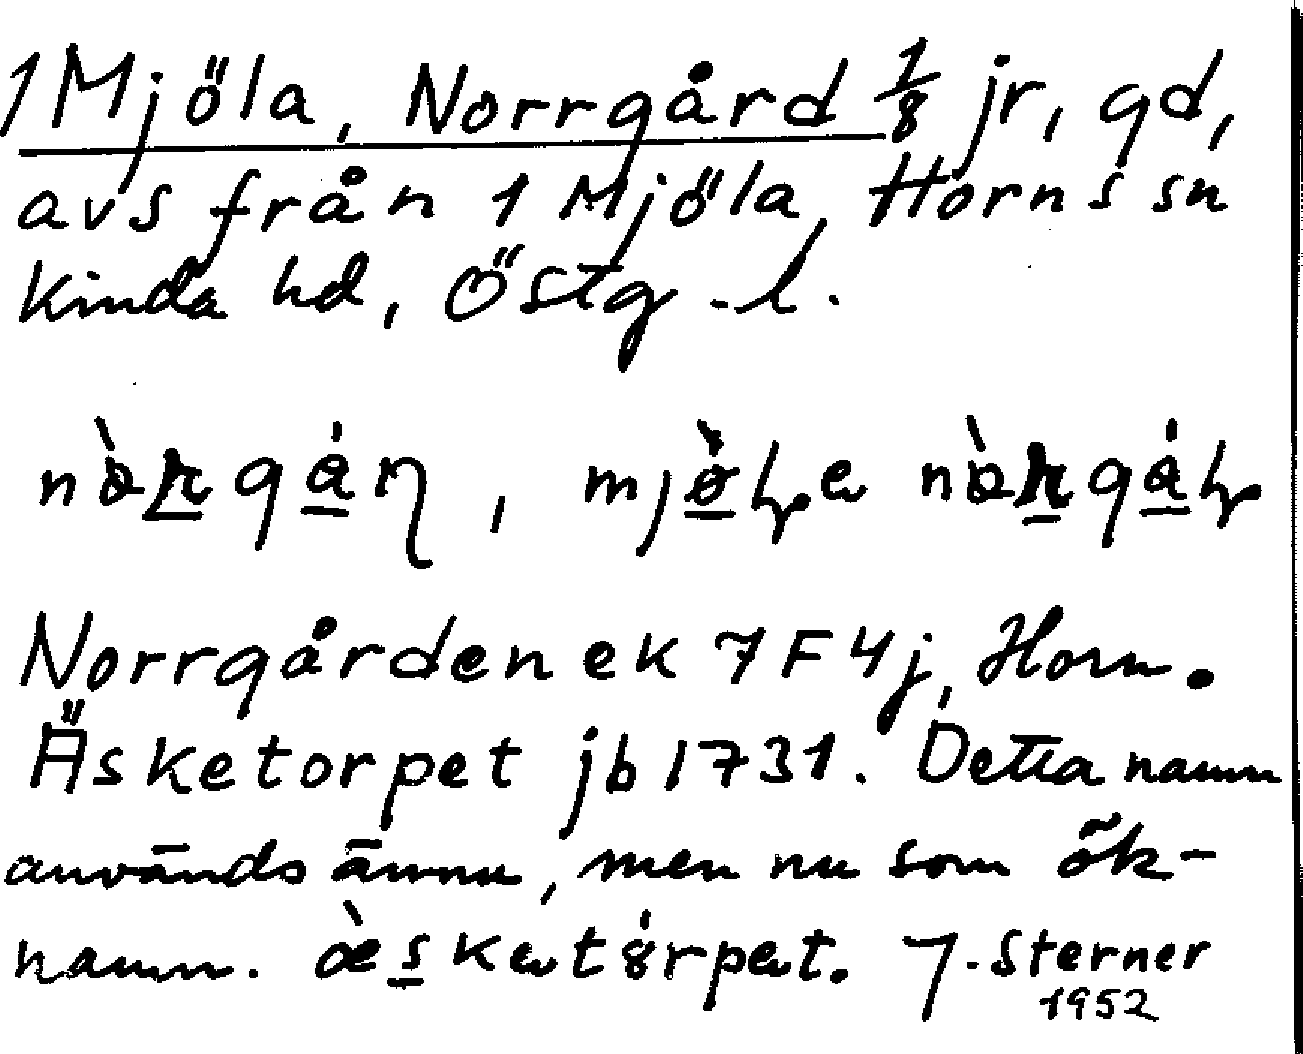 1 Mjöla, Norrgård 1/8 jr, gd,
avs från 1 Mjöla, Horns sn
Kinda hd, Östg.-l.
Norrgården ek 7F4j, Horn.
Äsketorpet jb 1731. Detta namn
används ännu, men nu som ök-
namn. J. Sterner
1952